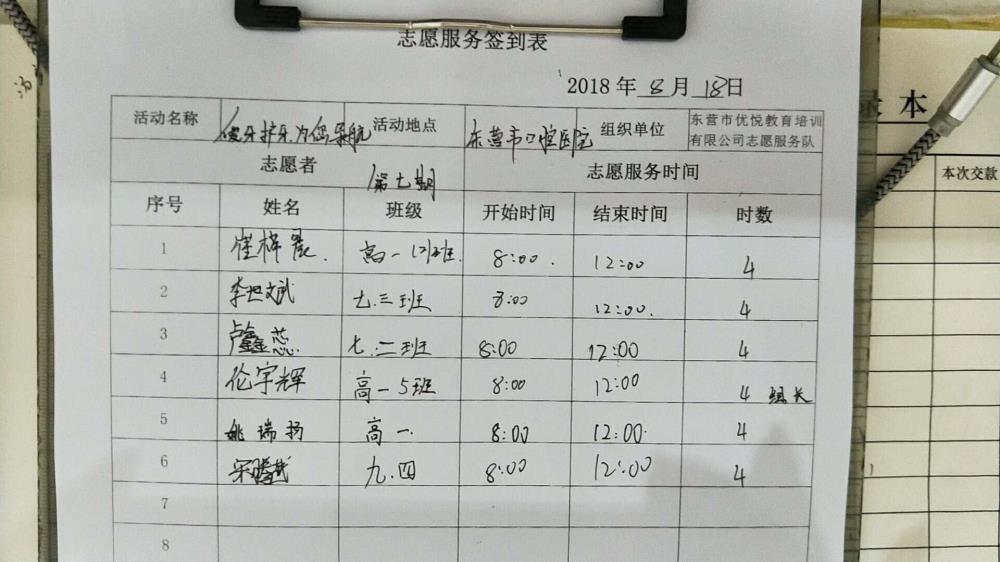 志愿服务签到表
2018 年 8 月 18 日
活动名称 爱牙护牙为您导航 活动地点 东营市口腔医院 组织单位 东营市优悦教育培训有限公司志愿服务队
志愿者 第七期 志愿服务时间
序号 姓名 班级 开始时间 结束时间 时数
1 崔梓晨. 高一 12班. 8:00. 12:00 4
2 李坦文武 七.三班 8:00 12:00. 4
3 卢鑫蕊. 七.二班 8:00 12:00 4
4 伦宇辉 高一5班 8:00 12:00 4 组长
5 姚瑞扬 高一. 8:00 12:00. 4
6 宋腾 九.四 8:00 12:00 4
7
8
本
本次交款